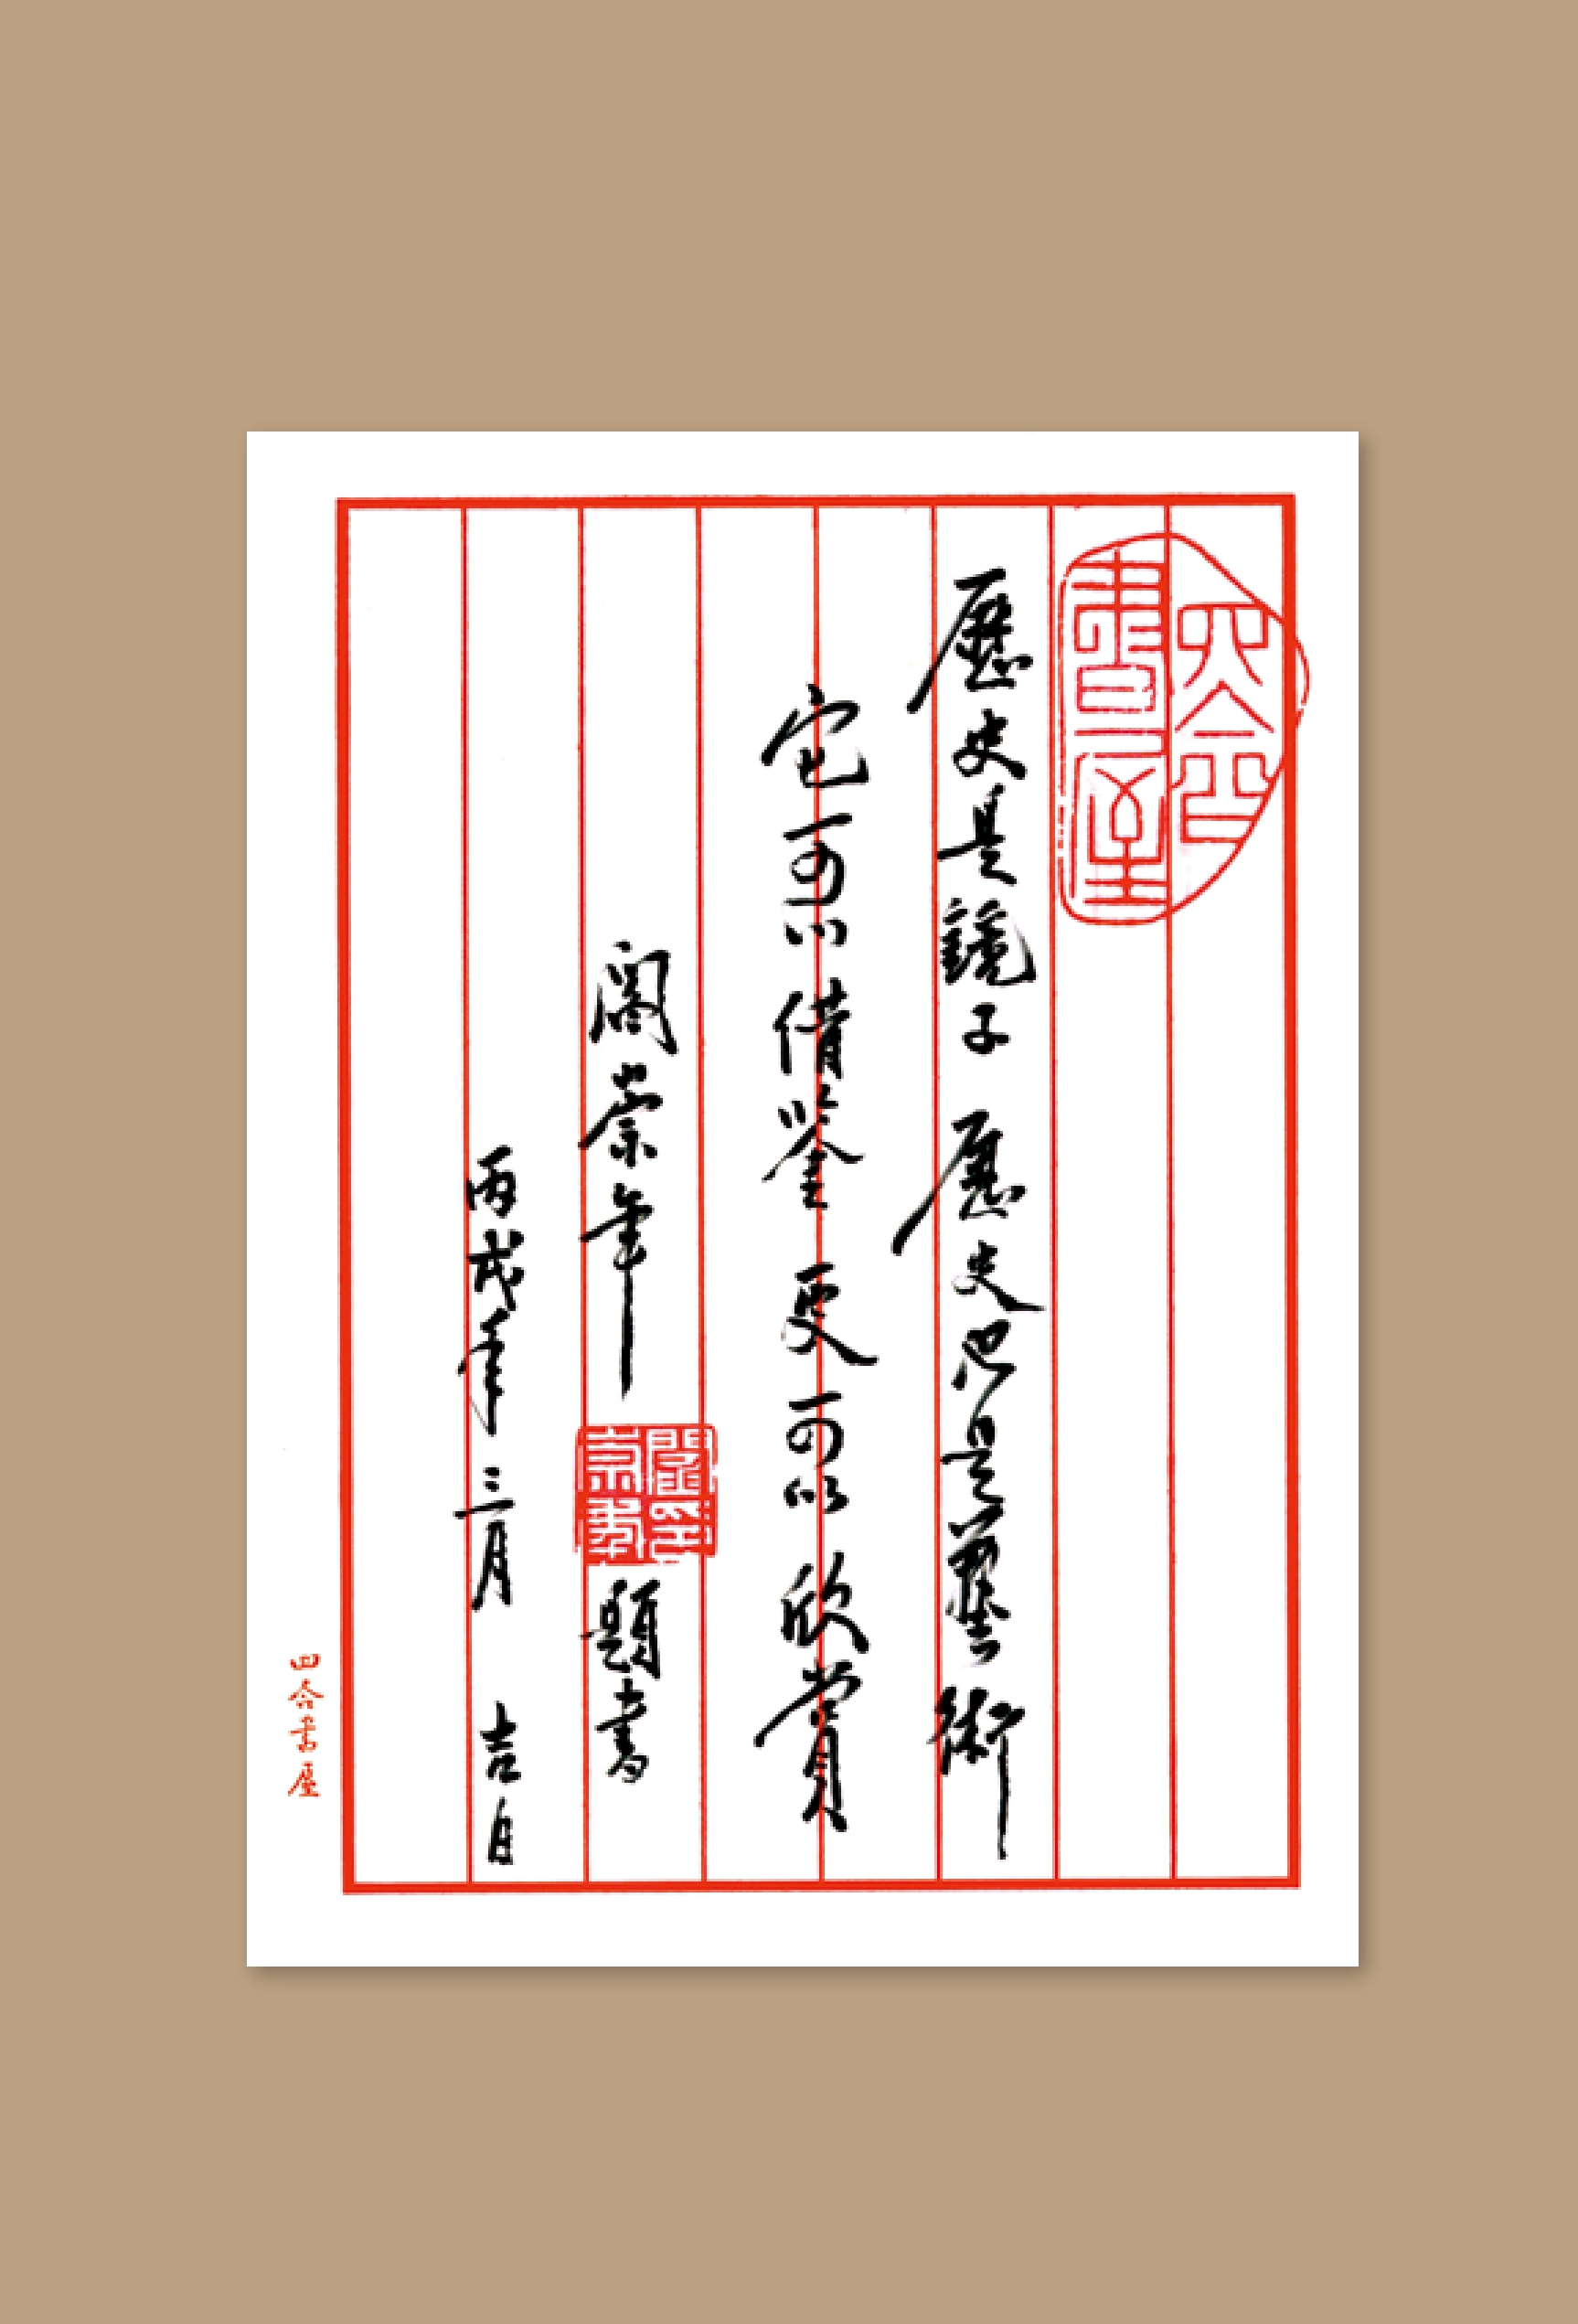 四合書屋
歷史是鏡子 歷史也是藝術
它可以借鉴 更可以欣賞
阎崇年 題書
閻崇年印
丙戌年三月 吉日
四合书屋